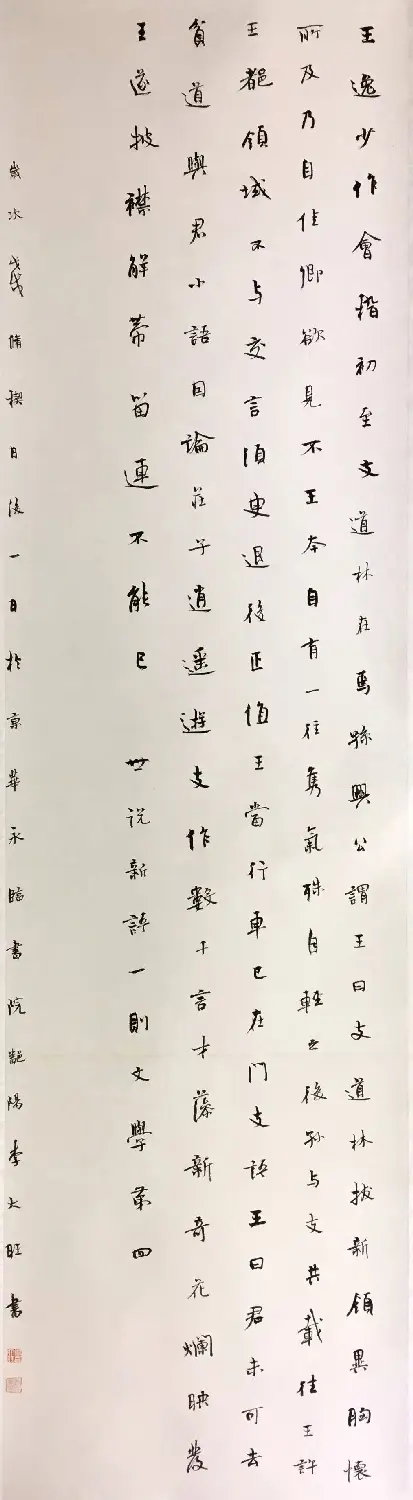 王逸少作會稽初至支道林在焉孫興公謂王曰支道林拔新領異胸懷
所及乃自佳卿欲見不王本自有一往雋氣殊自輕之後孫与支共載往王許
王都領域不与交言須臾退後正值王當行車已在門支語王曰君未可去
貧道與君小語因論莊子逍遥遊支作數千言才藻新奇花爛映發
王遂披襟解帶留連不能已 世説新語一則文學第四
歲次戊戌脩禊日後一日於京華永臨書院陽李大旺書